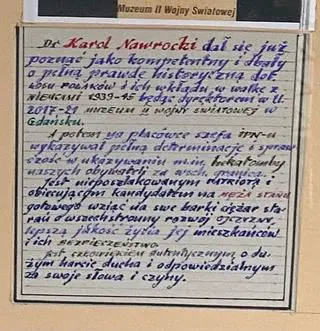 Muzeum II Wojny Światowej
Dr Karol Nawrocki dał się już
poznać jako kompetentny i dbały
o pełną prawdę historyczną dot.
losu POLAKÓW i ich wkładu w walkę z
NIEMCAMI 1939-45 będąc dyrektorem w l.
2017-21 MUZEUM II WOJNY ŚWIATOWEJ w
Gdańsku.
A potem na placówce szefa IPN-u
wykazywał pełną determinację i spraw
czość w ukazywaniu m.in. hekatomby
naszych obywateli za wsch. granicą.
Jest nieposzlakowanym patriotą i
obiecującym kandydatem na MĘŻA STANU
gotowego wziąć na swe barki ciężar sta-
rań o wszechstronny rozwój OJCZYZNY,
lepszą jakość życia jej mieszkańców
i ich BEZPIECZEŃSTWO
Jest człowiekiem autentycznym o du-
żym harcie ducha i odpowiedzialnym
za swoje słowa i czyny.